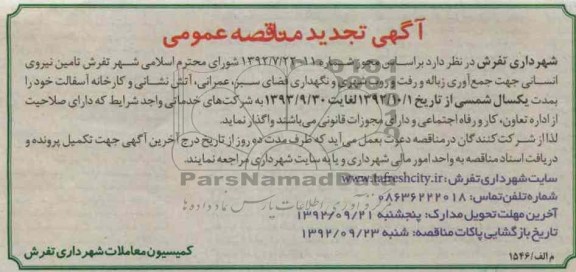 آگهی تجدید مناقصه عمومی
شهرداری تفرش در نظر دارد براساس مجوز شماره ۱۱۰-۱۳۹۲/۷/۲۲ شورای محترم اسلامی شهر تفرش تامین نیروی
انسانی جهت جمع‌آوری زباله و رفت و روب شهری و نگهداری فضای سبز، عمرانی، آتش نشانی و کارخانه آسفالت خود را
بمدت یکسال شمسی از تاریخ ۱۳۹۲/۱۰/۱ لغایت ۱۳۹۳/۹/۳۰ به شرکت‌های خدماتی واجد شرایط که دارای صلاحیت
از اداره تعاون، کار و رفاه اجتماعی و دارای مجوزات قانونی می‌باشند واگذار نماید.
لذا از شرکت کنندگان در مناقصه دعوت بعمل می‌آید که ظرف مدت ده روز از تاریخ درج آخرین آگهی جهت تکمیل پرونده و
دریافت اسناد مناقصه به واحد امور مالی شهرداری و یا به سایت شهرداری مراجعه نمایند.
ParsNamadData
سایت شهرداری تفرش: www.tafreshcity.ir
شماره تلفن تماس: ۰۸۶۳۶۲۲۲۰۱۸
آخرین مهلت تحویل مدارک: پنجشنبه ۱۳۹۲/۰۹/۲۱
تاریخ بازگشایی پاکات مناقصه: شنبه ۱۳۹۲/۰۹/۲۳
کمیسیون معاملات شهرداری تفرش
م الف/۱۵۴۶